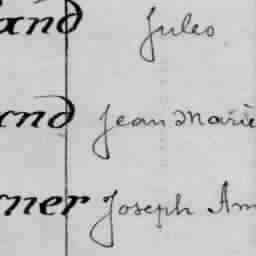 and Jules
and Jean Marie
ner Joseph Am